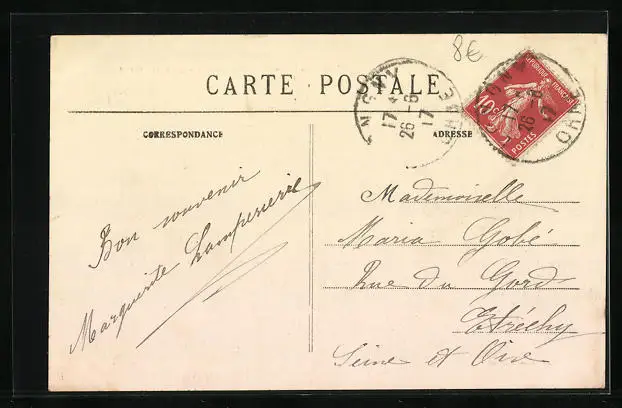 8€
CARTE POSTALE
CORRESPONDANCE
ADRESSE
REPUBLIQUE FRANÇAISE
10c
POSTES
17
26-6
17
ORNE
17
26-6
ORNE
Bon souvenir
Marguerite
Mademoiselle
Maria Gobé
Rue du Gord
Etréchy
Seine et Oise